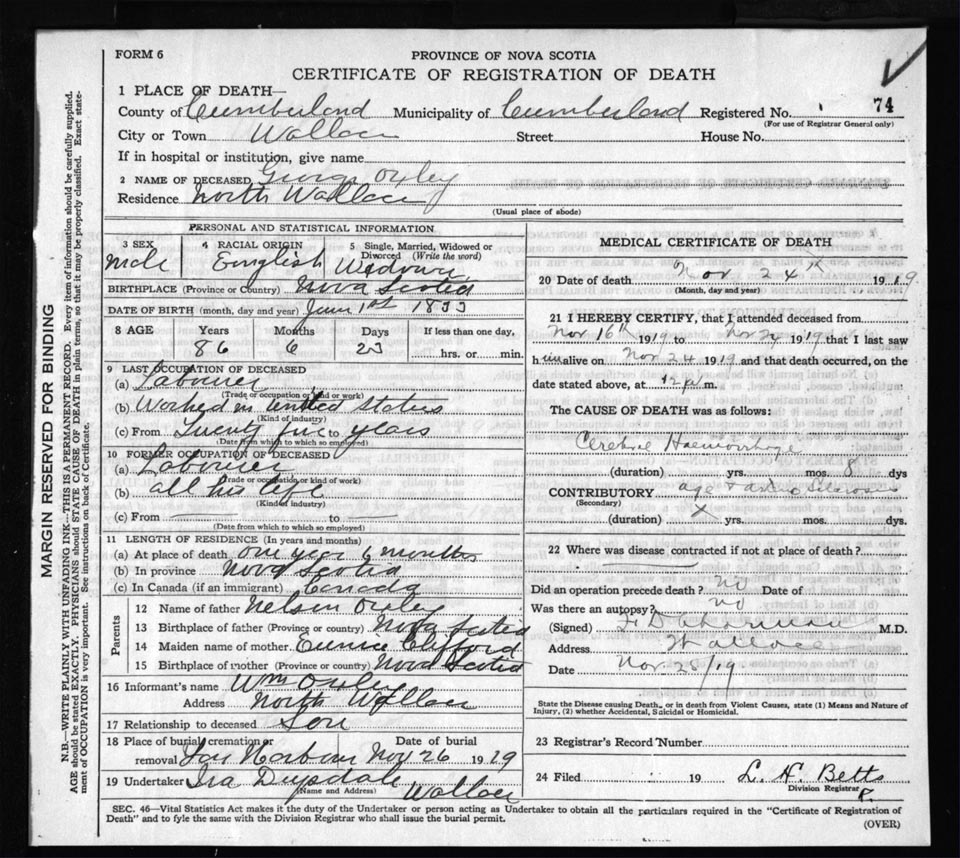 FORM 6
PROVINCE OF NOVA SCOTIA
CERTIFICATE OF REGISTRATION OF DEATH
1 PLACE OF DEATH—
County of Cumberland Municipality of Cumberland Registered No. 74
(For use of Registrar General only)
City or Town Wallace Street House No.
If in hospital or institution, give name
2 NAME OF DECEASED George Oxley
Residence North Wallace
(Usual place of abode)
PERSONAL AND STATISTICAL INFORMATION
3 SEX Male
4 RACIAL ORIGIN English
5 Single, Married, Widowed or Divorced (Write the word)
BIRTHPLACE (Province or Country) Nova Scotia
DATE OF BIRTH (month, day and year) June 1st
8 AGE Years Months Days If less than one day,
86 6 23 hrs. or min.
9 LAST OCCUPATION OF DECEASED
(a) Labourer
(Trade or occupation or kind of work)
(b) Worked in United States
(Kind of industry)
(c) From Twenty five to years
(Date from which to which so employed)
10 FORMER OCCUPATION OF DECEASED
(a) Labourer
(Trade or occupation or kind of work)
(b) all his life
(Kind of industry)
(c) From to
(Date from which to which so employed)
11 LENGTH OF RESIDENCE (In years and months)
(a) At place of death one year 6 months
(b) In province Nova Scotia
(c) In Canada (if an immigrant) Canada
Parents
12 Name of father Nelson Oxley
13 Birthplace of father (Province or country) Nova Scotia
14 Maiden name of mother Eunice Clifford
15 Birthplace of mother (Province or country) Nova Scotia
16 Informant's name Wm Oxley
Address North Wallace
17 Relationship to deceased Son
18 Place of burial, cremation or removal Fox Harbour Date of burial Nov 26 1929
19 Undertaker Ira Drysdale Wallace
(Name and Address)
MEDICAL CERTIFICATE OF DEATH
20 Date of death Nov 24th 1919
(Month, day and year)
21 I HEREBY CERTIFY, that I attended deceased from
Nov 16th 1919 to Nov 24 1919 that I last saw
h im alive on Nov 24 1919 and that death occurred, on the
date stated above, at 12 m.
The CAUSE OF DEATH was as follows:
Haemorrhage
(duration) yrs. mos. 8 dys
CONTRIBUTORY age + arterio Sclerosis
(Secondary)
(duration) X yrs. mos. dys.
22 Where was disease contracted if not at place of death?
Did an operation precede death? no Date of
Was there an autopsy? no
(Signed) M.D.
Address Wallace
Date Nov. 25/19
State the Disease causing Death, or in death from Violent Causes, state (1) Means and Nature of
Injury, (2) whether Accidental, Suicidal or Homicidal.
23 Registrar's Record Number
24 Filed 19 L. H. Betts
Division Registrar
SEC. 46—Vital Statistics Act makes it the duty of the Undertaker or person acting as Undertaker to obtain all the particulars required in the "Certificate of Registration of
Death" and to fyle the same with the Division Registrar who shall issue the burial permit.
(OVER)
MARGIN RESERVED FOR BINDING
N.B.—WRITE PLAINLY WITH UNFADING INK—THIS IS A PERMANENT RECORD. Every item of information should be carefully supplied.
AGE should be stated EXACTLY. PHYSICIANS should STATE CAUSE OF DEATH in plain terms, so that it may be properly classified. Exact state-
ment of OCCUPATION is very important. See instructions on back of Certificate.